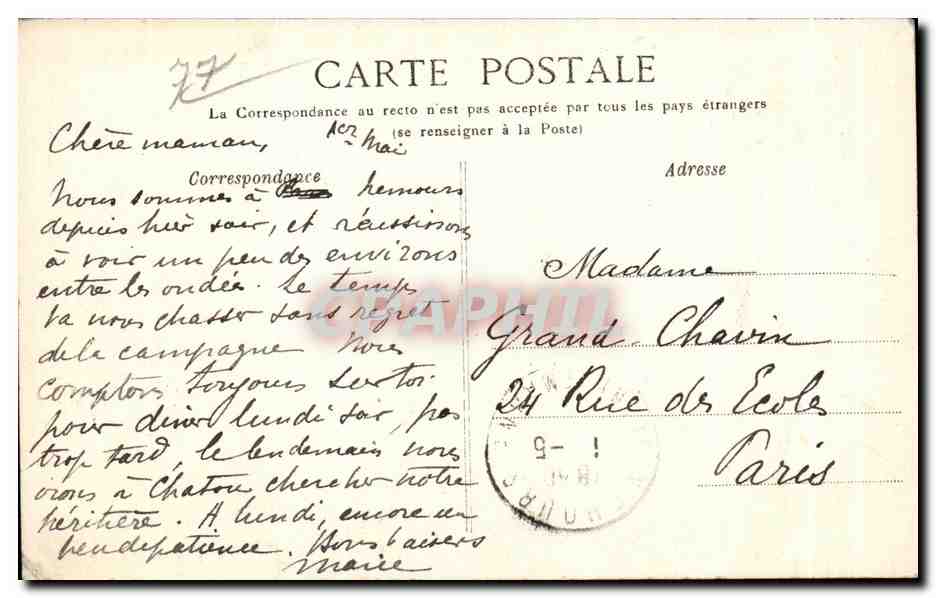 77
CARTE POSTALE
La Correspondance au recto n'est pas acceptée par tous les pays étrangers
(se renseigner à la Poste)
Chère maman, 1er Mai
Correspondance
Adresse
Nous sommes à Nemours
depuis hier soir, et réussissons
à voir un peu des environs
entre les ondées. Le temps
va nous chasser sans regret
de la campagne Nous
comptons toujours sur toi
pour diner lundi soir, pas
trop tard, le lendemain nous
irons à Chatou chercher notre
héritière. A lundi, encore un
peu de patience. Bons baisers
Marie
Madame
Grand-Chavin
24 Rue des Ecoles
Paris
1 -5
CPAPHIL